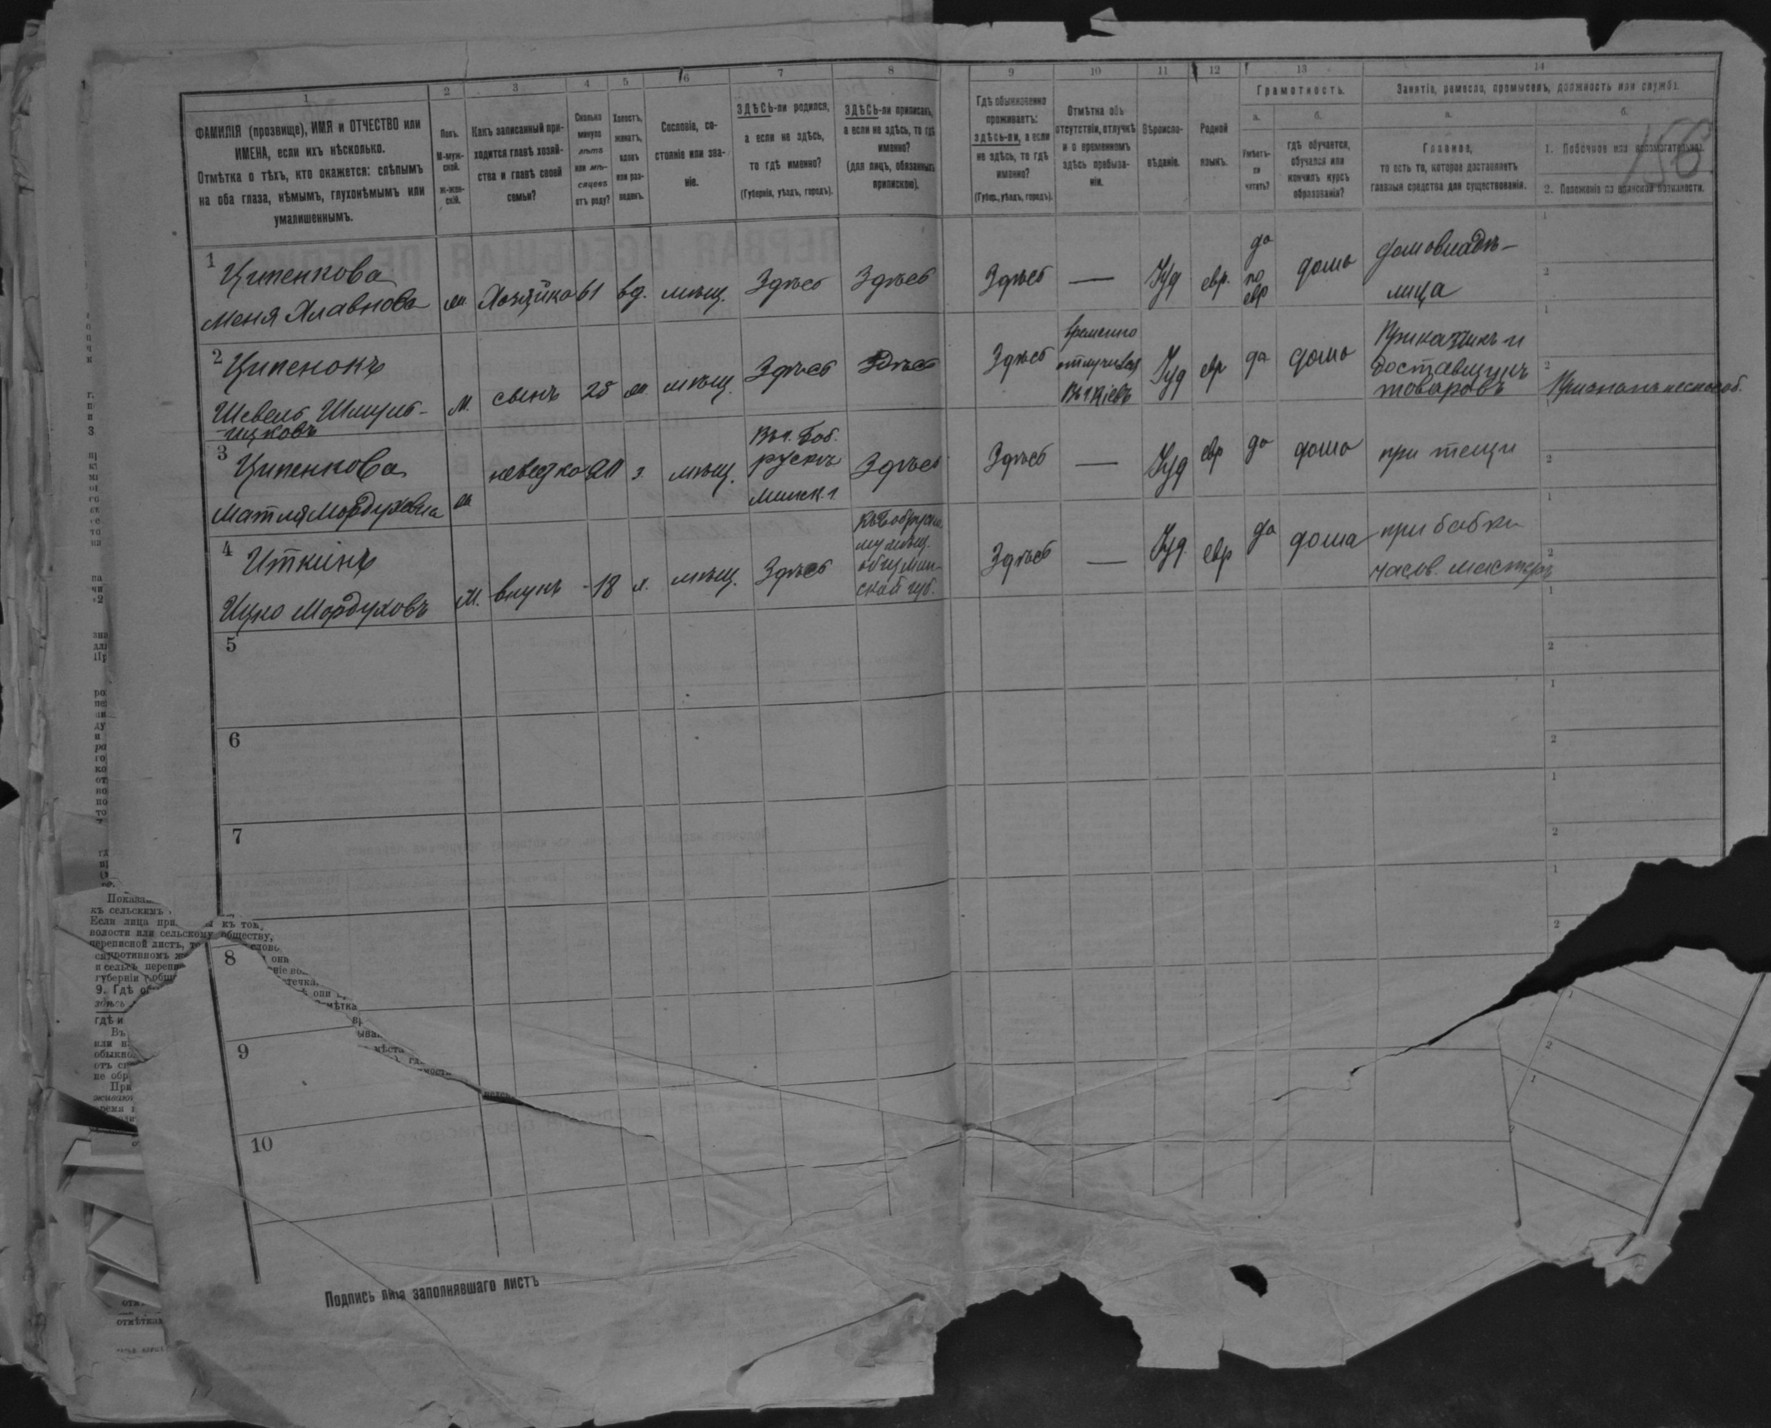 156
1
2
3
4
5
6
7
8
9
10
11
12
13
14
ФАМИЛІЯ (прозвище), ИМЯ и ОТЧЕСТВО или
ИМЕНА, если ихъ нѣсколько.
Отмѣтка о тѣхъ, кто окажется: слѣпымъ
на оба глаза, нѣмымъ, глухонѣмымъ или
умалишеннымъ.
Полъ.
М-муж-
ской.
Ж-жен-
скій.
Какъ записанный при-
ходится главѣ хозяй-
ства и главѣ своей
семьи?
Сколько
минуло
лѣтъ
или мѣ-
сяцевъ
отъ роду?
Холостъ,
женатъ,
вдовъ
или раз-
веденъ.
Сословіе, со-
стояніе или зва-
ніе.
ЗДѢСЬ-ли родился,
а если не здѣсь,
то гдѣ именно?
(Губернія, уѣздъ, городъ).
ЗДѢСЬ-ли приписанъ,
а если не здѣсь, то гдѣ
именно?
(для лицъ, обязанныхъ
припискою).
Гдѣ обыкновенно
проживаетъ:
здѣсь-ли, а если
не здѣсь, то гдѣ
именно?
(Губер., уѣздъ, городъ).
Отмѣтка объ
отсутствіи, отлучкѣ
и о временномъ
здѣсь пребыва-
ніи.
Вѣроиспо-
вѣданіе.
Родной
языкъ.
Грамотность.
а.
Умѣетъ-
ли
читать?
б.
гдѣ обучается,
обучался или
кончилъ курсъ
образованія?
Занятіе, ремесло, промыселъ, должность или служба.
а.
Главное,
то есть то, которое доставляетъ
главныя средства для существованія.
б.
1. Побочное или вспомогательное.
2. Положеніе по воинской повинности.
1
Ципенкова
Меня Хлавнова
Хозяйка
61
вд.
мѣщ.
Здѣсь
Здѣсь
Здѣсь
—
Іуд
евр.
да
по
евр
дома
домовладѣ-
лица
2
Ципенокъ
Шевель Шмуль-
Ицковъ
М.
сынъ
25
мѣщ.
Здѣсь
Здѣсь
Здѣсь
временно
Іуд
евр
да
дома
Приказчикъ и
доставщикъ
товаровъ
3
Ципенкова
Матля Мордуховна
невестка
20
з.
мѣщ.
Въ г. Боб.
рускъ
Минск. г
Здѣсь
Здѣсь
—
Іуд
евр
да
дома
при тещи
4
Иткинъ
Ицко Мордуховъ
М.
внукъ
18
х.
мѣщ.
Здѣсь
ской губ.
Здѣсь
—
Іуд.
евр
да
дома
при бабки
часов. мастеръ
5
6
7
8
9
10
Подпись лица заполнявшаго листъ